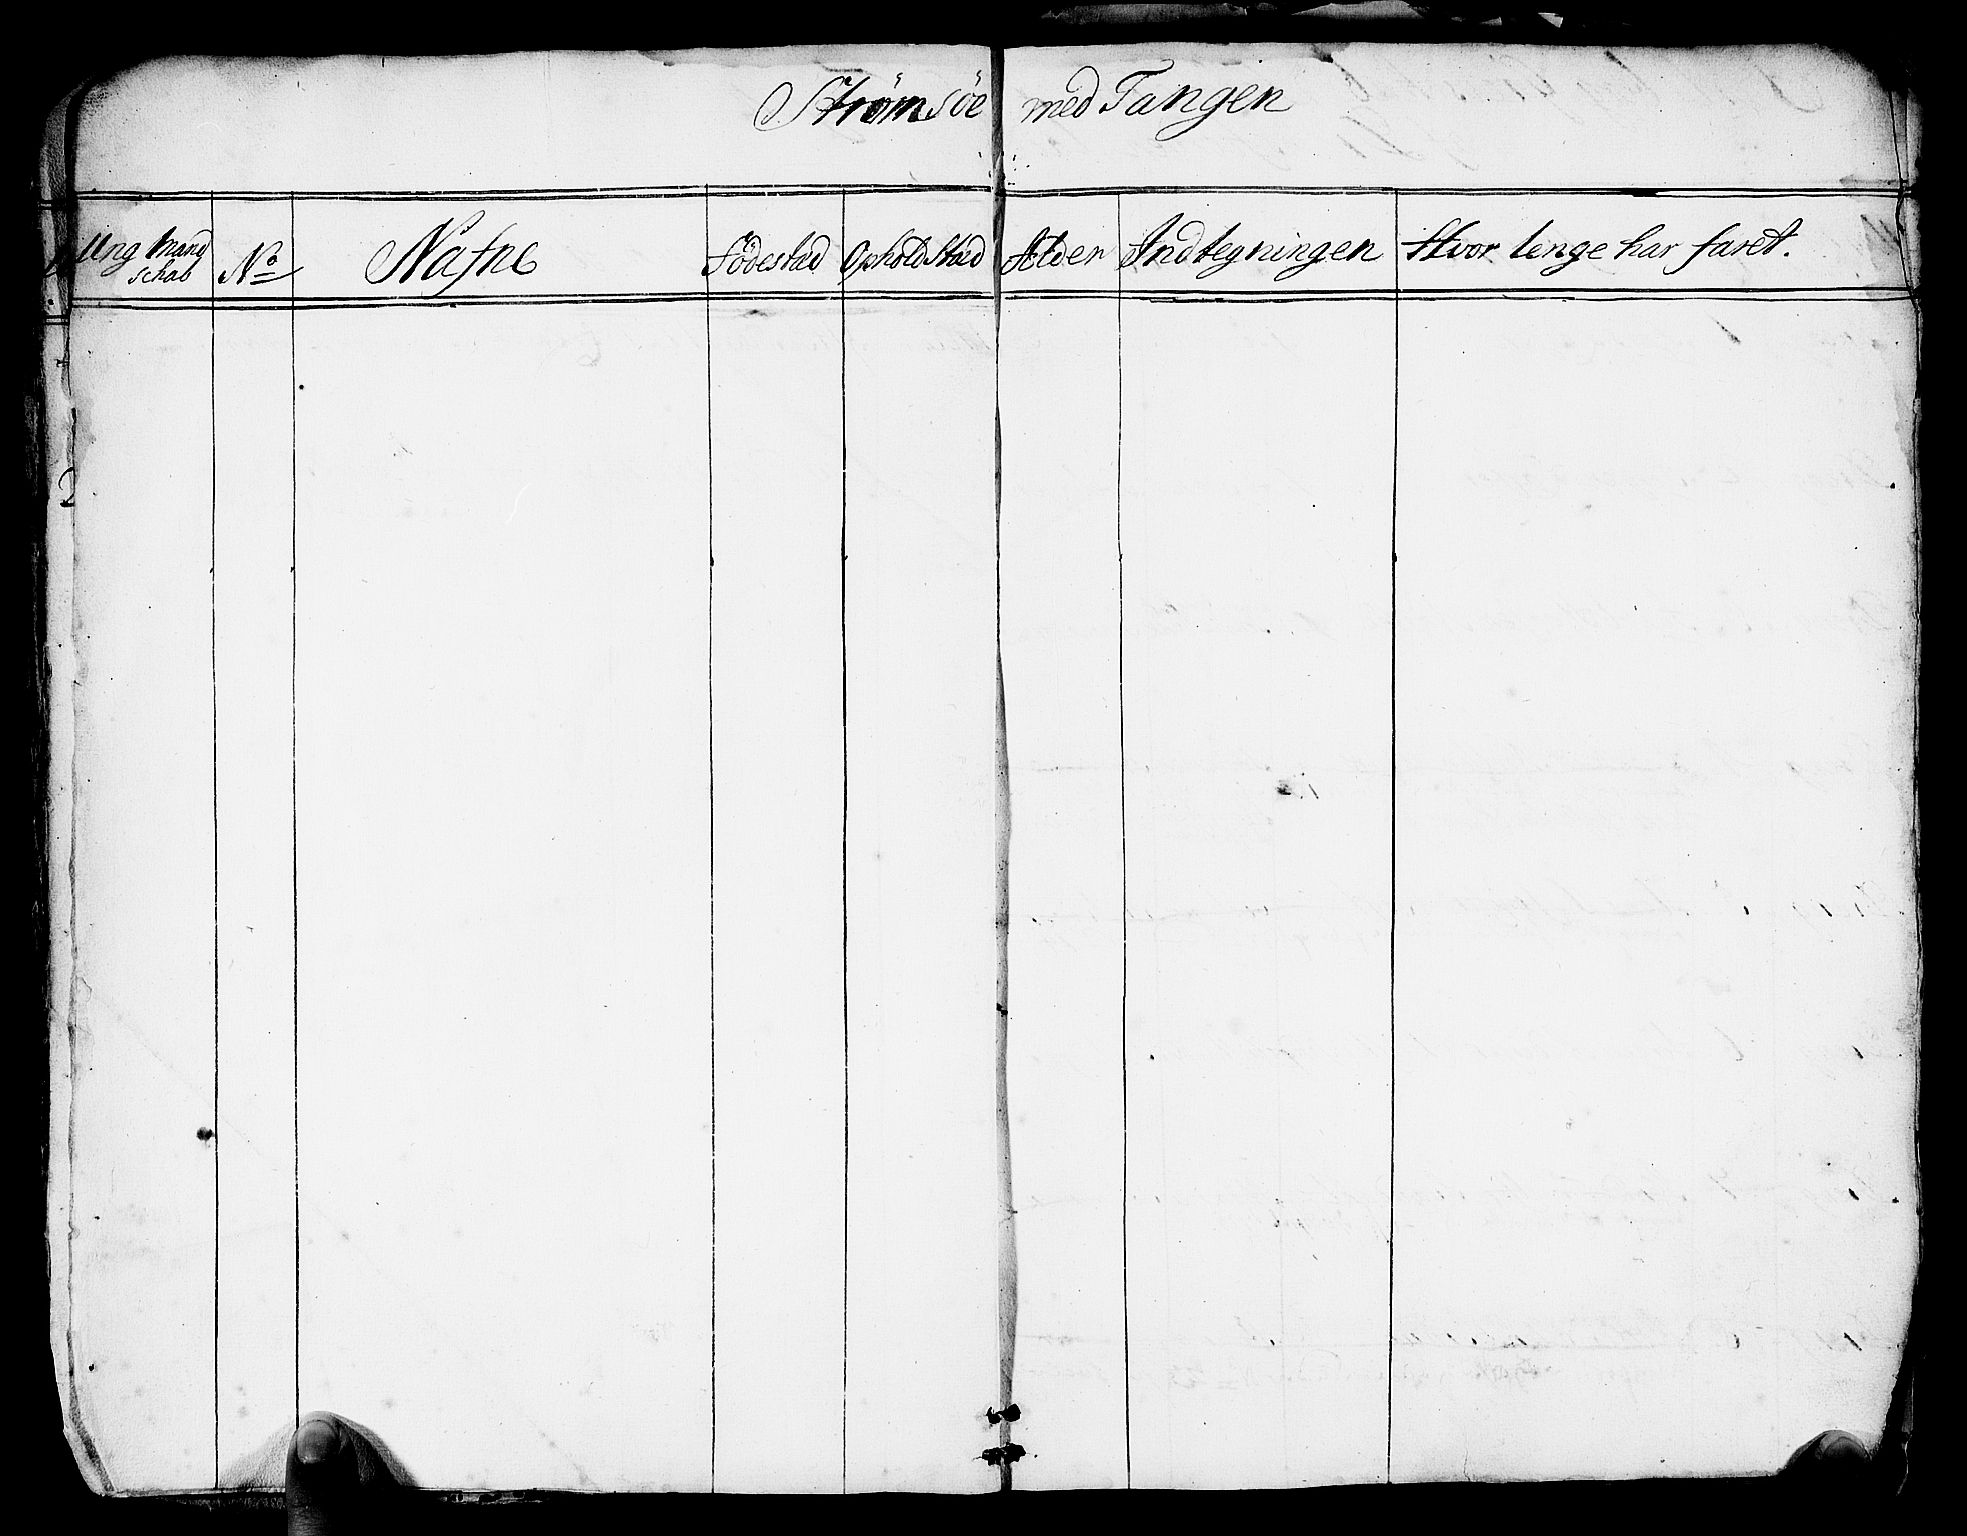 Strømsöe med Tangen
Ung Mand schab No Nafne Födestad Ophold Stæd Alder Indtegningen Hvor lenge har faret.
2